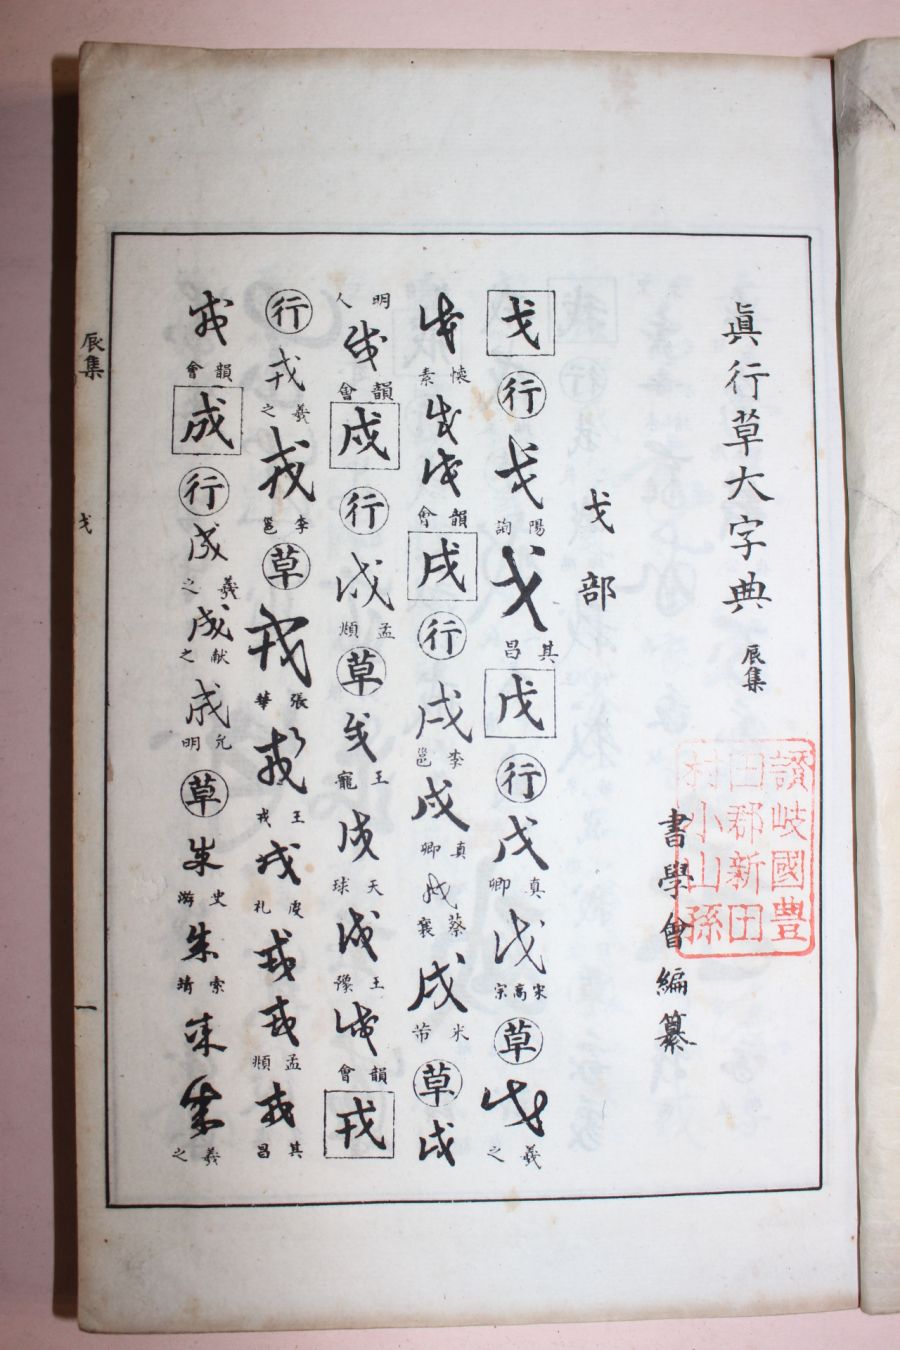 眞行草大字典 辰集
讃岐國豊
田郡新田
村小山孫
書學會編纂
戈部
戈 行 戈 陽詢 戈 其昌 戊 行 戊 真卿 戊 宋高宗 草 戊 羲之
戊 懷素 戊 戊 韻會 戌 行 戌 李邕 戌 真卿 戌 蔡襄 戌 米芾 草 戌
明人 戌 韻會 戍 行 戍 孟頫 草 戍 王寵 戍 天球 戍 王豫 戍 韻會 戎
行 戎 羲之 戎 李邕 草 戎 張華 戎 王戎 戎 皮礼 戎 戎 孟頫 戎 其昌
戎 韻會 成 行 成 羲之 成 献之 成 允明 草 成 史游 成 索靖 成 成 羲之
辰集 戈 一